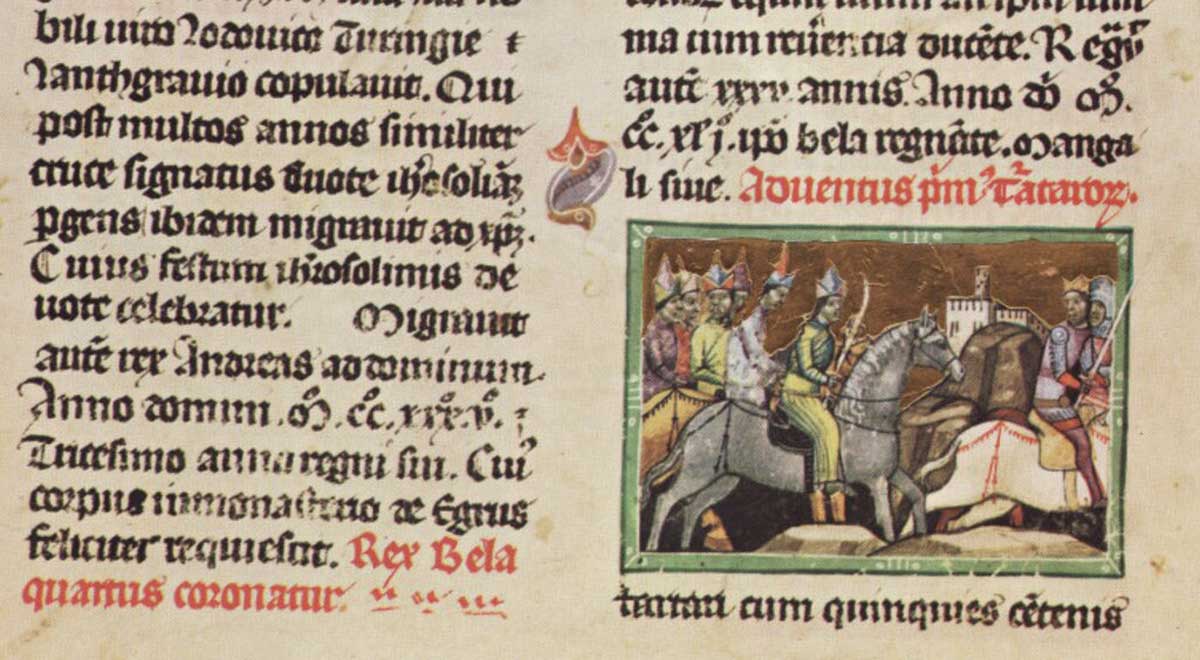 bili uiro Lodouico Turingie ⁊
Lanthgrauio copulauit. Qui
post multos annos similiter
cruce signatus deuote ih̅osolia̅ꝫ
ꝑgens ibidem migrauit ad xp̅ꝫ.
Cuius festum ih̅rosolimis de
uote celebratur. Migrauit
aute̅ rex Andreas ad dominum.
Anno domini. M̊. CC̊. xxx̊. v̊. ⁊
Tricesimo anno regni sui. Cui᾽
corpus in monasterio de Egrus
feliciter requiescit. Rex Bela
quartus coronatur.
ma cum reu̅erencia duce̅te. Reg̅u̅
aut̅e xxxv. annis. Anno do̅ M̊.
CC̊. xlj̊. ip̅o bela regna̅te. Manga
li siue. Aduentus p̅m᾽ Ta̅taroꝝ.
tartari cum quinquies ce̅tenis